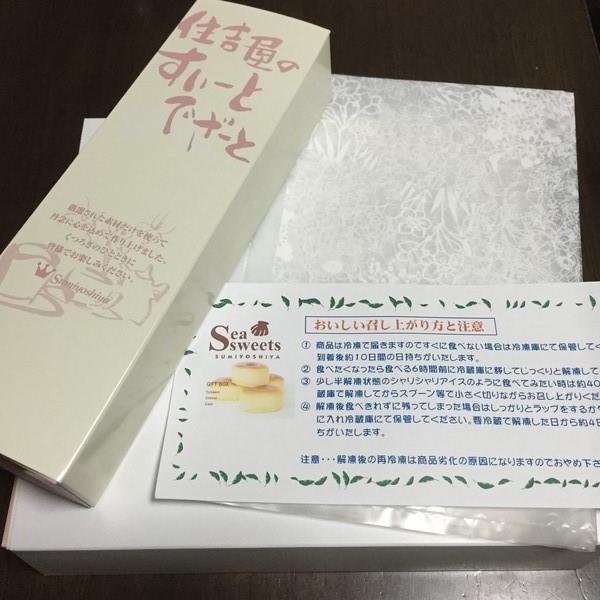 住吉屋の
すいーと
でざーと
厳選された素材だけを使って
丹念に心を込めて作り上げました。
くつろぎのひとときに
皆様でお楽しみください。
Sumiyoshiya
Sea
sweets
SUMIYOSHIYA
GIFT BOX
おいしい召し上がり方と注意
① 商品は冷凍で届きますのですぐに食べない場合は冷凍庫にて保管してく
到着後約10日間の日持ちがいたします。
② 食べたくなったら食べる6時間前に冷蔵庫に移してじっくりと解凍して
③ 少し半解凍状態のシャリシャリアイスのように食べてみたい時は約40
蔵庫で解凍してからスプーン等で小さく切りながらお召し上がりくだ
④ 解凍後食べきれずに残ってしまった場合はしっかりとラップをするか
に入れ冷蔵庫にて保管してください。要冷蔵で解凍した日から約4日
ちがいたします。
注意・・・解凍後の再冷凍は商品劣化の原因になりますのでおやめ下さ